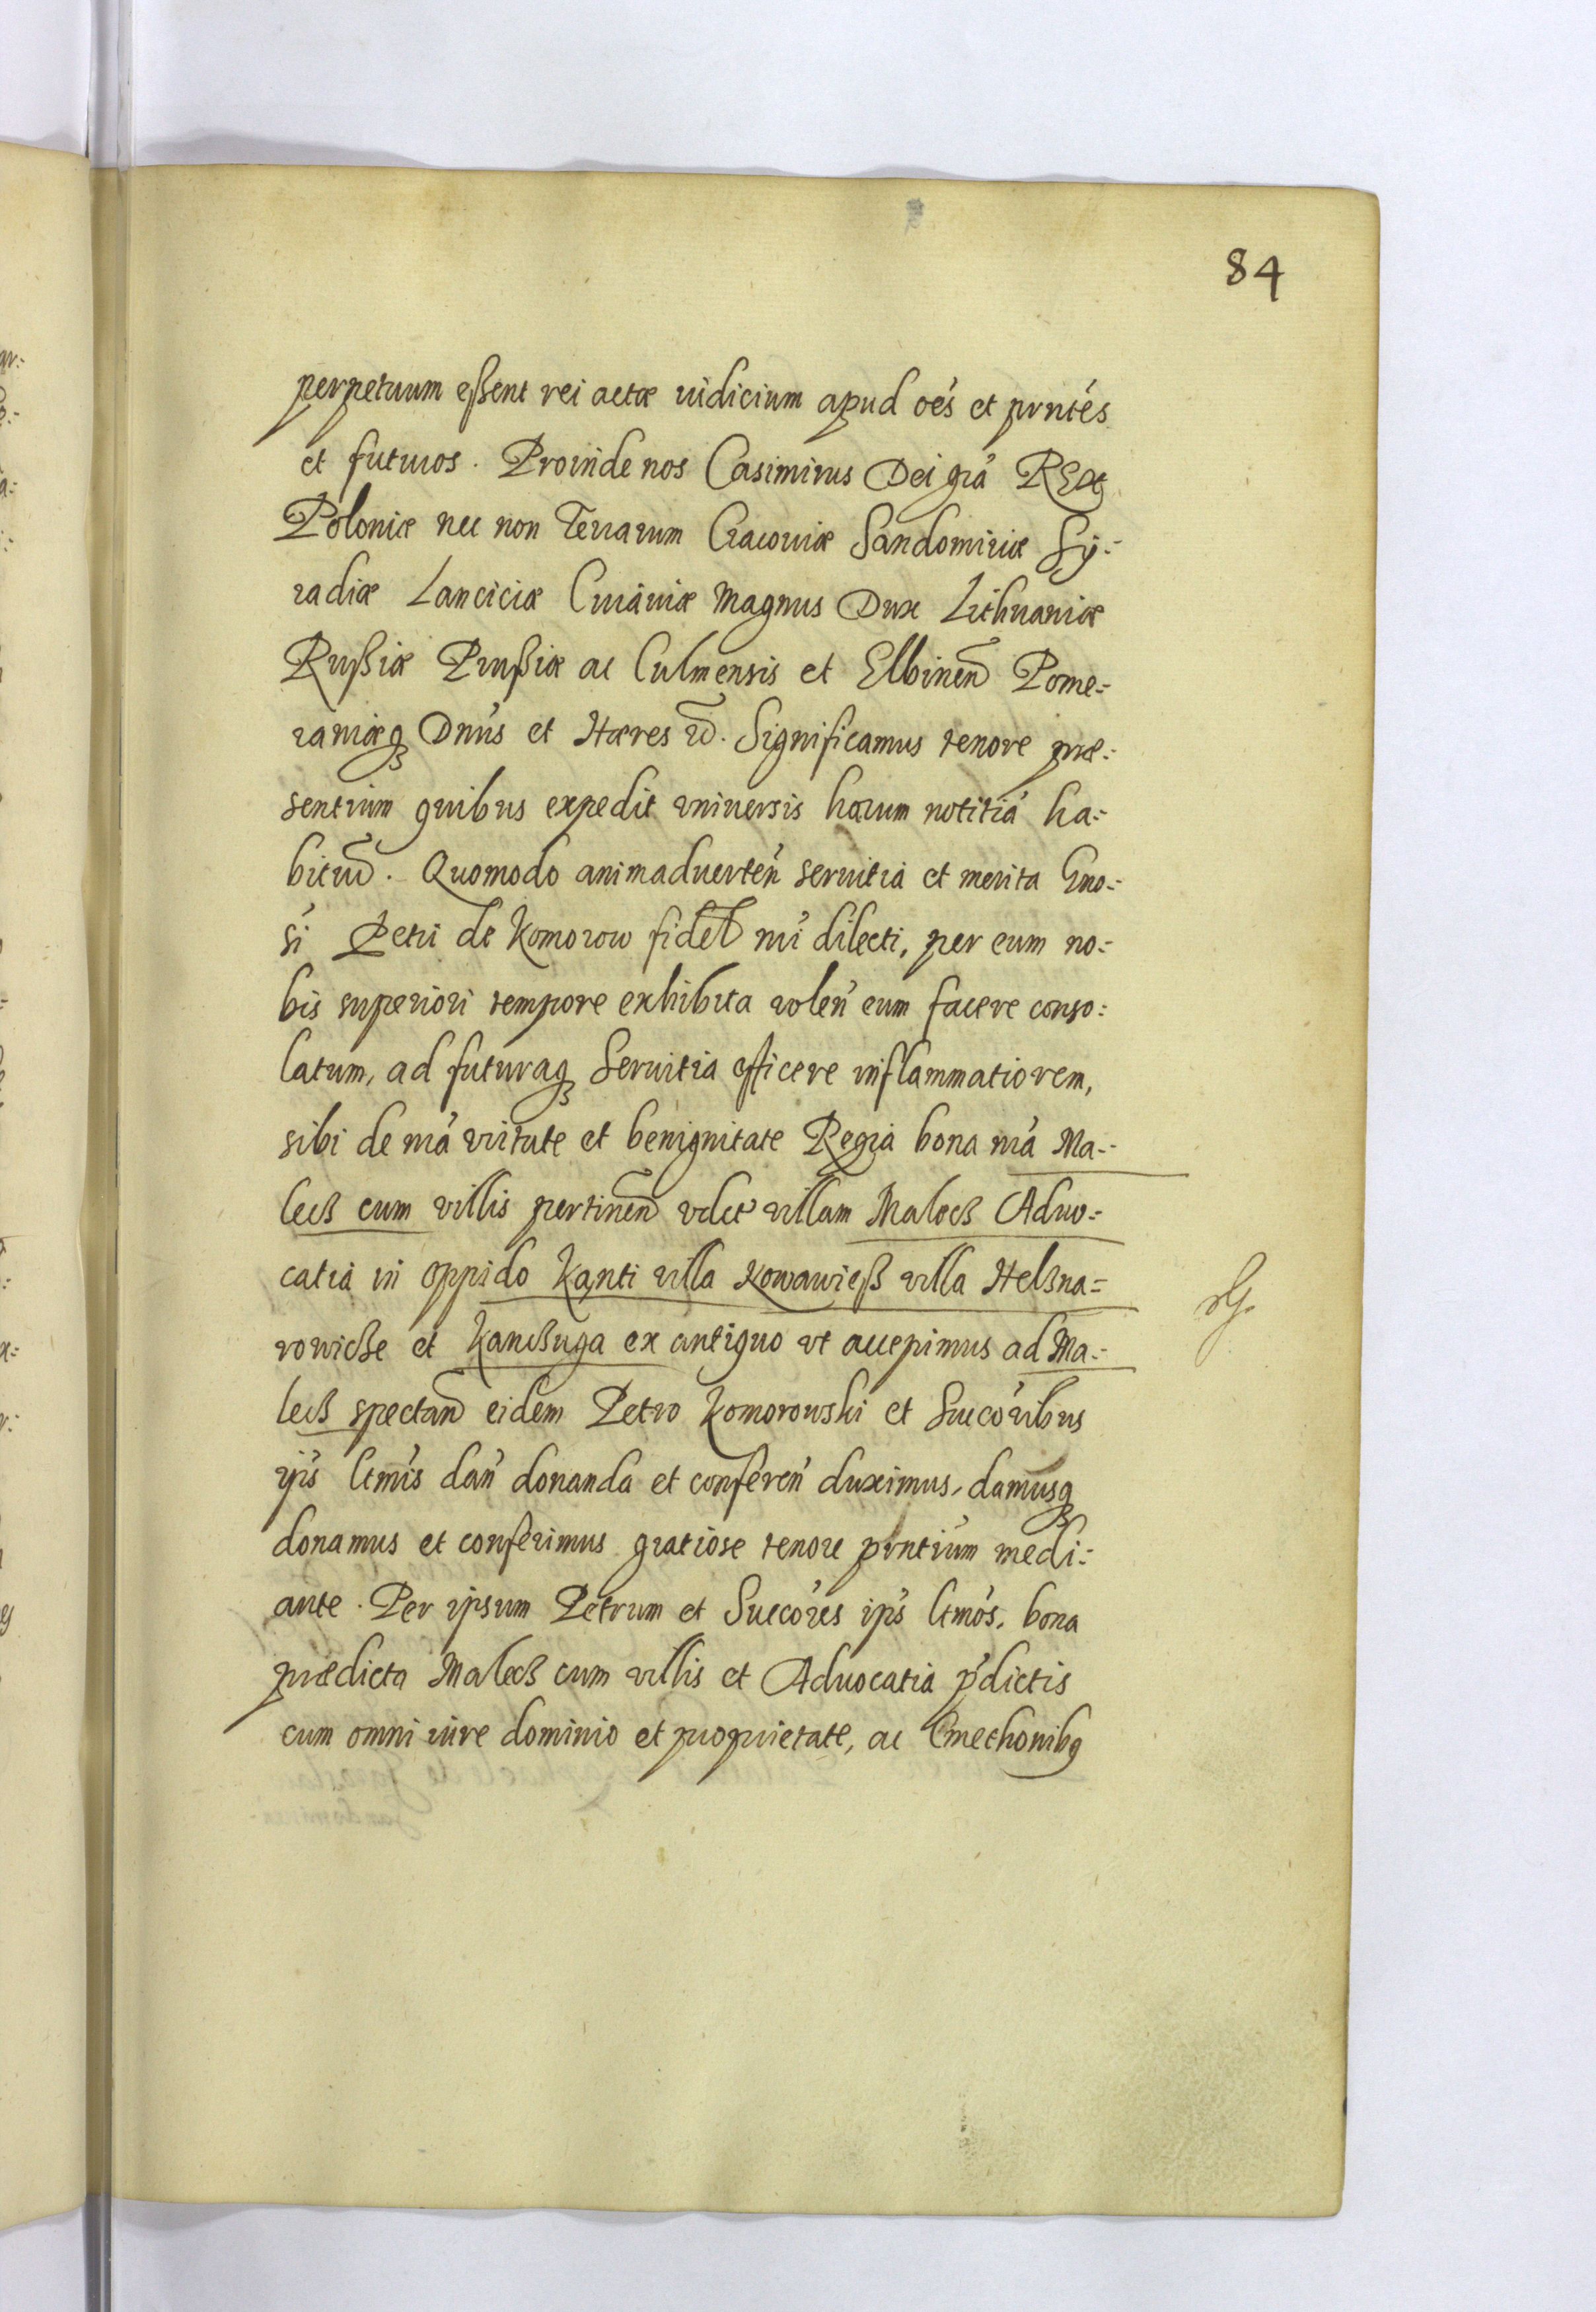 84
perpetuum eßent rei actæ iudicium apud oe̅s et prnte̅s
et futuros. Proinde nos Casimirus Dei gra̅ REX
Poloniæ nec non Terrarum Cracouiæ Sandomiriæ Sy=
radiæ Lanciciæ Cuiauiæ Magnus Dux Lithuaniæ
Rußiæ Prußiæ ac Culmensis et Elbinen̅ Pome=
raniæq₃ Dnu̅s et Hæres &. Significamus tenore præ=
sentium quibus expedit vniuersis harum notitia̅ ha=
bitu̅. Quomodo animaduerten̅ seruitia et merita Gno=
si̅ Petri de Komorow fidel̅ nri̅ dilecti, per eum no=
bis superiori tempore exhibita volen̅ eum facere conso=
latum, ad futuraq₃ Seruitia efficere inflammatiorem,
sibi de nra̅ virtute et benignitate Regia bona nra̅ Ma=
lecz cum villis pertinen̅ vdlt villam Malecz Aduo=
catia in oppido Kanti villa Kowawieß villa Helzna=
rowicze et Kanczuga ex antiquo vt accepimus ad Ma=
lecz spectan̅ eidem Petro Komorowski et Succo̅ribus
ip̅s ltmi̅s dan̅ donanda et conferen̅ duximus, damusq₃
donamus et conferimus gratiose tenore prntiu̅m medi=
ante. Per ipsum Petrum et Succo̅res ip̅s ltmo̅s, bona
prædicta Malecz cum villis et Aduocatia p̅dictis
cum omni iure dominio et proprietate, ac Cmethonibq